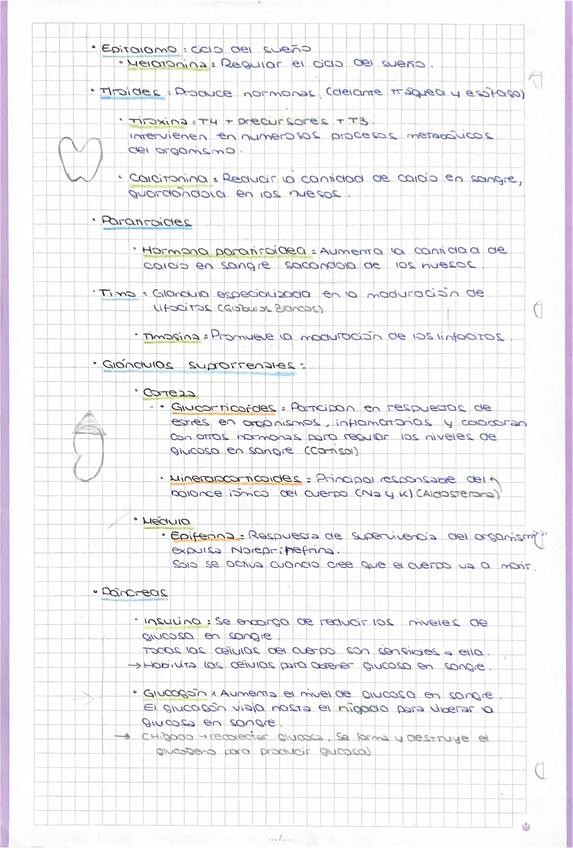 · Epitalamo : ciclo del sueño
· Melatonina : Regular el ciclo del sueño.
· Tiroides : Produce hormonas. (delante traquea y esófago)
· Tiroxina : T4 + precursores + T3.
Intervienen en numerosos procesos metabólicos
del organismo.
· Calcitonina : Reducir la cantidad de calcio en sangre,
guardándola en los huesos.
· Paratiroides
· Hormona paratiroidea : Aumenta la cantidad de
calcio en sangre sacándola de los huesos.
· Timo : Glándula especializada en la maduración de
lifocitos (Glóbulos Blancos)
· Timosina : Promueve la maduración de los linfocitos.
· Glándulas suprarrenales :
· Corteza
· Glucorticoides : Participan en respuestas de
estrés en organismos, inflamatorias y colaboran
con otros hormonas para regular los niveles de
glucosa en sangre (Cortisol)
· Mineralocorticoides : Principal responsable del
balance iónico del cuerpo (Na y K) (Aldosterona)
· Médula
· Epiferina : Respuesta de supervivencia del organismo
expulsa Norepinefrina.
Solo se activa cuando cree que el cuerpo va a morir.
· Páncreas
· Insulina : Se encarga de reducir los niveles de
glucosa en sangre.
Todos las células del cuerpo son sensibles a ella.
→ Habilita las células para obtener glucosa en sangre.
· Glucagón : Aumenta el nivel de glucosa en sangre.
El glucagón viaja hasta el hígado para liberar la
glucosa en sangre.
→ (Hígado → recolectar glucosa, se forma y destruye el
glucógeno para producir glucosa)
.../...